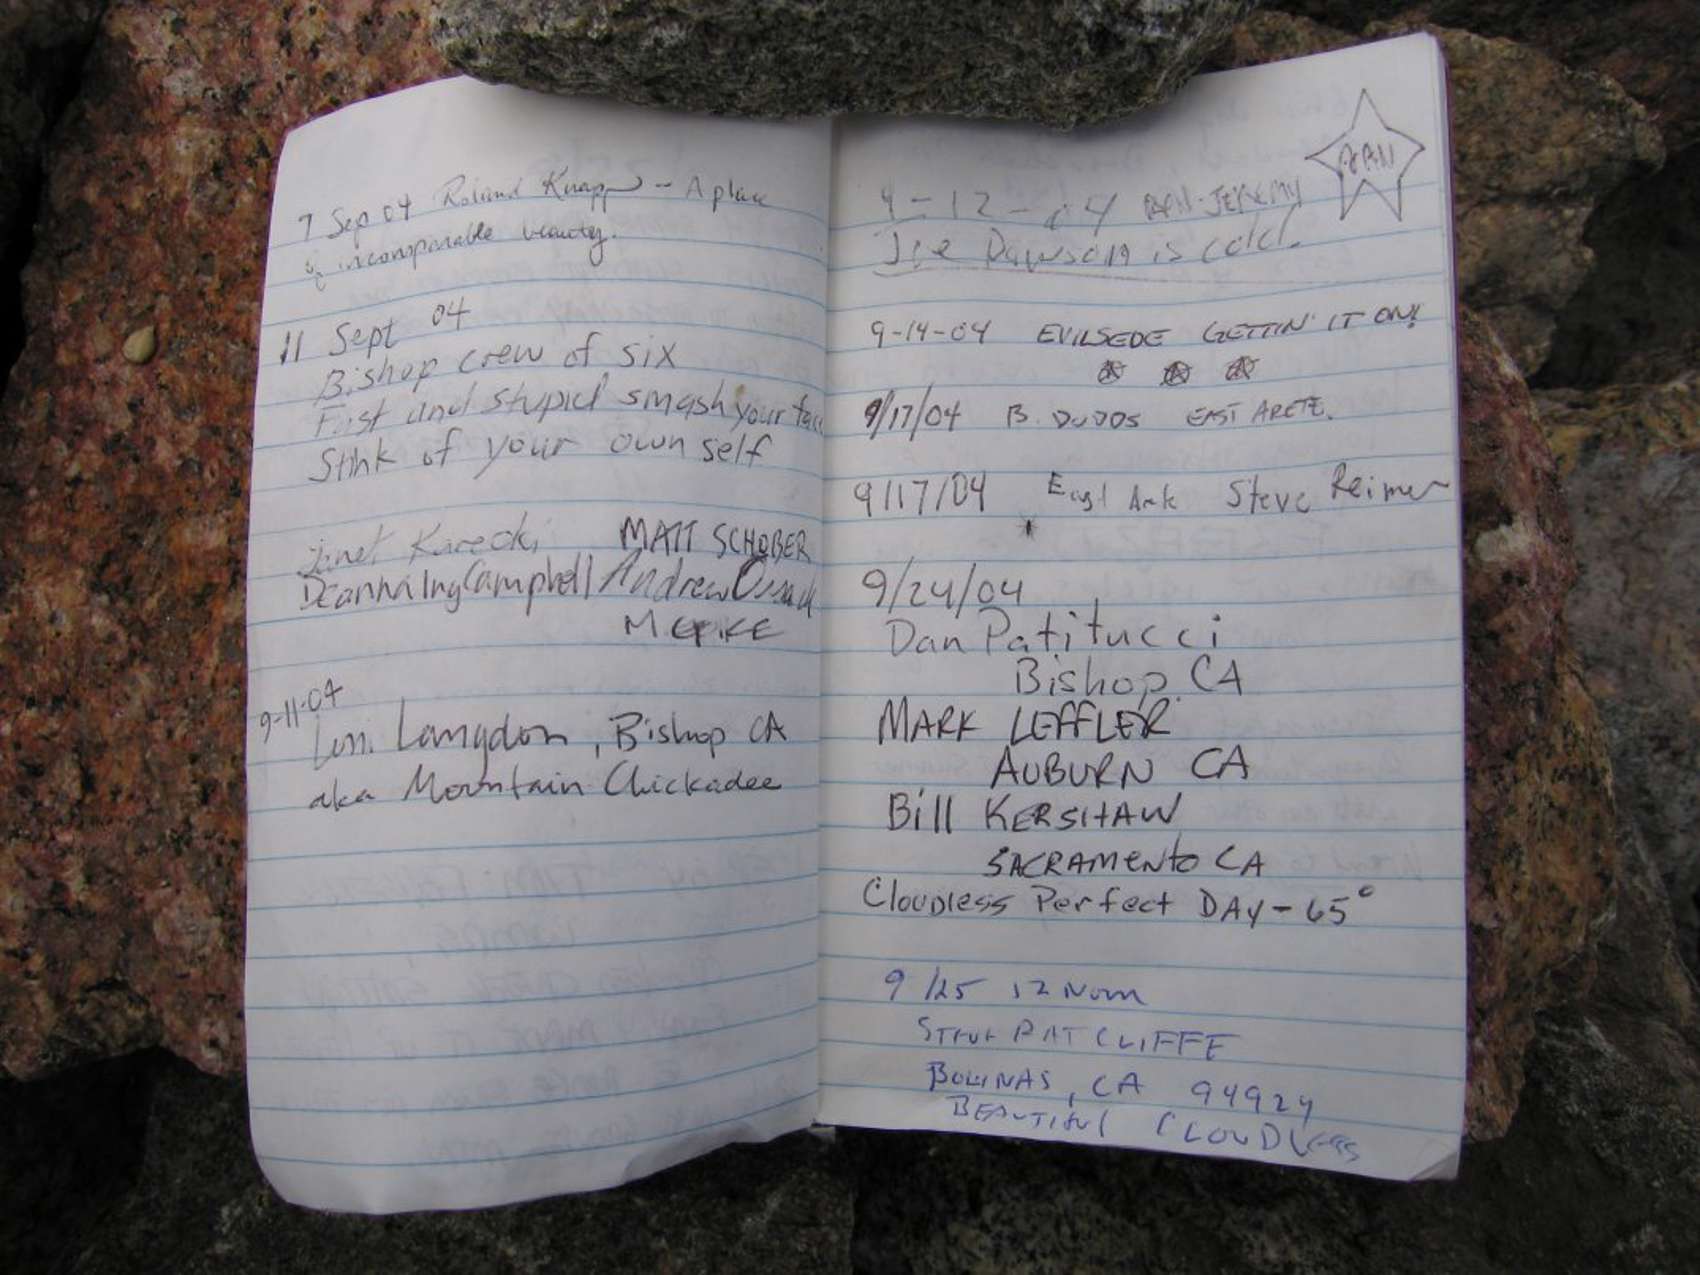 7 Sep 04 Roland Knapp - A place
of incomparable beauty.
11 Sept 04
Bishop crew of six
Fast and stupid smash your face
Stink of your own self
Janet Karecki MATT SCHOBER
Deanna Ing Campbell Andrew
9-11-04
Lori Langdon, Bishop CA
aka Mountain Chickadee
JEREMY
Joe Dawson is cold.
9-14-04 EVILSEDE GETTIN' IT ON!
9/17/04 B. DUDOS EAST ARETE.
9/17/04 East Arete Steve Reimer
9/24/04
Dan Patitucci
Bishop, CA
MARK LEFFLER
AUBURN CA
Bill KERSHAW
SACRAMENTO CA
Cloudless Perfect DAY - 65°
9/25 12 Noon
STEVE RATCLIFFE
BOLINAS, CA 94924
BEAUTIFUL CLOUDLESS